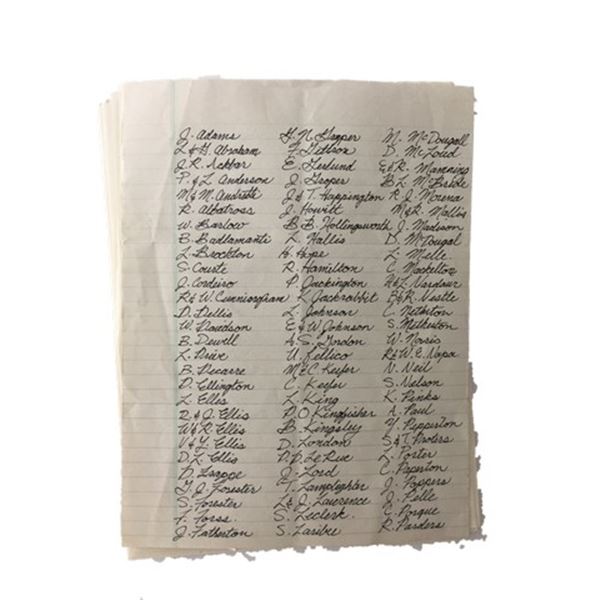 J. Adams
L & H. Abraham
J. R. Ackbar
P. & L. Anderson
M & M. Andreth
R. Albatross
W. Barlow
B. Badlamanti
L. Brockton
S. Courte
J. Cordeiro
R & W Cunningham
D. Dellis
W. Doudson
B. Dewell
L. Drive
B. Decarre
D. Ellington
L. Ellis
R & J. Ellis
W & R. Ellis
V & Y. Ellis
D. L. Ellis
D. Esappe
T. J. Forester
S. Forester
F. Forss.
J. Fatherton
H. N Gropper
F. Gittson
E. Gerlund
J. Groper
J & T. Happington
J. Howitt
B. B. Hollingsworth
L. Hallis
H. Hope
R. Hamilton
P. Jackington
K. Jackrabbit
L. Johnson
E & W Johnson
A. S. Gordon
U. Jellico
M & C Keefer
C. Keefer
L. King
D. O Kingfisher
B. Kingsley
D. London
D. P. Le Rue
J. Lord
T. Lamplighter
L & J. Lawrence
S. Leclerk.
S. Laribe
M. McDougall
D. McLoud
E & R. Manning
B. L. McBride
R. J. Morena
M & R. Mallis
J. Madison
D. McDougal
L. Melle.
C. Mackelton
A & L Nardour
B & R. Nestle
C. Netherton
S. Netherton
W. Noris
R & W. E. Napa
N. Neil
S. Nelson
K. Pinks
A. Paul
Y. Pepperton
S & T. Proters
L. Porter
C. Paperton
J. Poppers
J. Pelle
C. Porque
R. Parders